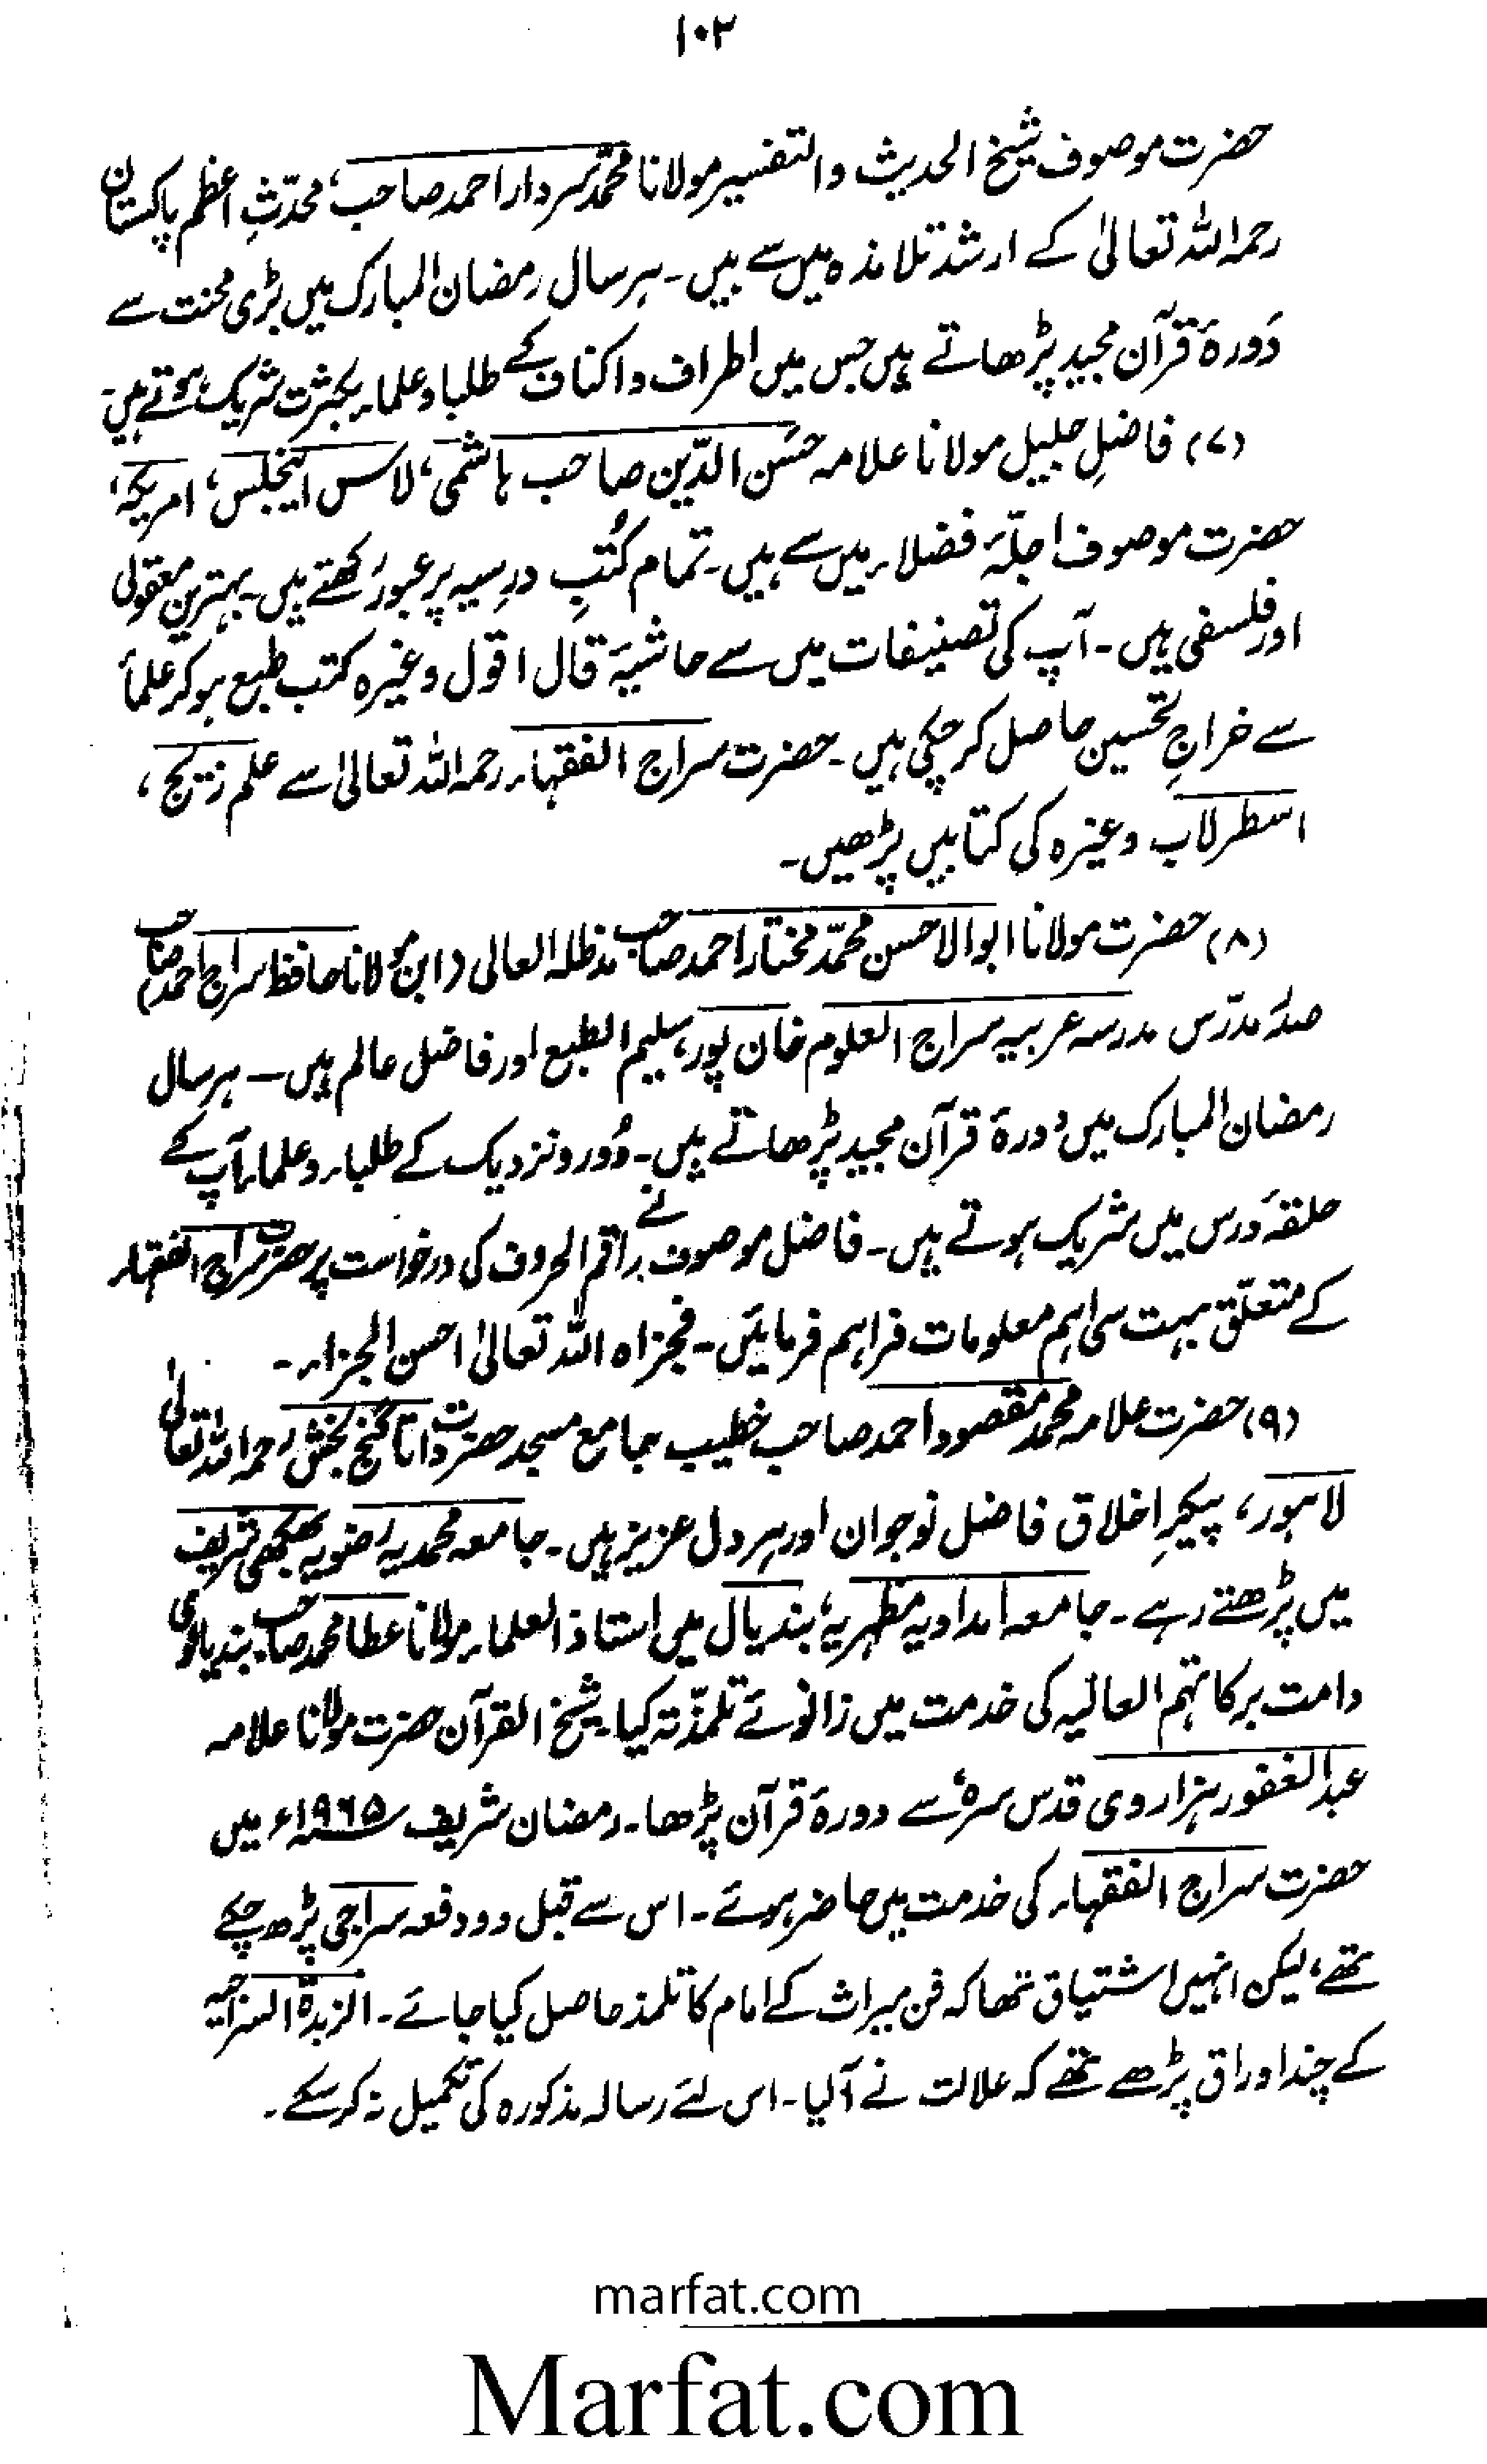 ۱۰۲
حضرت موصوف شیخ الحدیث والتفسیر مولانا محمد سردار احمد صاحب، محدّثِ اعظم پاکستان
رحمہ اللہ تعالیٰ کے ارشد تلامذہ میں سے ہیں۔ ہر سال رمضان المبارک میں بڑی محنت سے
دَورۂ قرآن مجید پڑھاتے ہیں جس میں اطراف و اکناف کے طلبا و علماء بکثرت شریک ہوتے ہیں۔
(۷) فاضلِ جلیل مولانا علامہ حسَن الدّین صاحب ہاشمی، لاس اینجلس، امریکہ،
حضرت موصوف اجلّہ فضلاء میں سے ہیں۔ تمام کُتبِ درسیہ پر عبور رکھتے ہیں۔ بہترین معقولی
اور فلسفی ہیں۔ آپ کی تصنیفات میں سے حاشیہ قال اقول وغیرہ کتب طبع ہو کر علمأ
سے خراجِ تحسین حاصل کر چکی ہیں۔ حضرت سراج الفقہاء رحمہ اللہ تعالیٰ سے علم زیج،
اسطرلاب وغیرہ کی کتابیں پڑھیں۔
(۸) حضرت مولانا ابوالاحسن محمّد مختار احمد صاحب مدظلہ العالی (ابن مولانا حافظ سراج احمد صاحب)
صدر مدرّس مدرسہ عربیہ سراج العلوم خان پور، سلیم الطبع اور فاضل عالم ہیں — ہر سال
رمضان المبارک میں دورۂ قرآن مجید پڑھاتے ہیں۔ دُور و نزدیک کے طلباء و علماء آپ کے
حلقۂ درس میں شریک ہوتے ہیں۔ فاضل موصوف نے راقم الحروف کی درخواست پر حضرت سراج الفقہاء
کے متعلّق بہت سی اہم معلومات فراہم فرمائیں۔ فجزاہ اللہ تعالیٰ احسن الجزاء۔
(۹) حضرت علامہ محمد مقصود احمد صاحب خطیب جامع مسجد حضرت داتا گنج بخش رحمہ اللہ تعالیٰ
لاہور، پیکرِ اخلاق فاضل نوجوان اور ہر دل عزیز ہیں۔ جامعہ محمدیہ رضویہ بھکھی شریف
میں پڑھتے رہے۔ جامعہ امدادیہ مظہریہ، بندیال میں استاذ العلماء مولانا عطا محمد صاحب بندیالوی
دامت برکاتہم العالیہ کی خدمت میں زانوئے تلمذّ تہ کیا۔ شیخ القرآن حضرت مولانا علامہ
عبدالغفور ہزاروی قدس سرہٗ سے دورۂ قرآن پڑھا۔ رمضان شریف ۱۹۶۵ء میں
حضرت سراج الفقہاء کی خدمت میں حاضر ہوئے۔ اس سے قبل دو دفعہ سراجی پڑھ چکے
تھے، لیکن انہیں اشتیاق تھا کہ فن میراث کے امام کا تلمذ حاصل کیا جائے۔ الزبدۃ السراجیہ
کے چند اوراق پڑھے تھے کہ علالت نے آلیا۔ اس لئے رسالہ مذکورہ کی تکمیل نہ کر سکے۔
marfat.com
Marfat.com